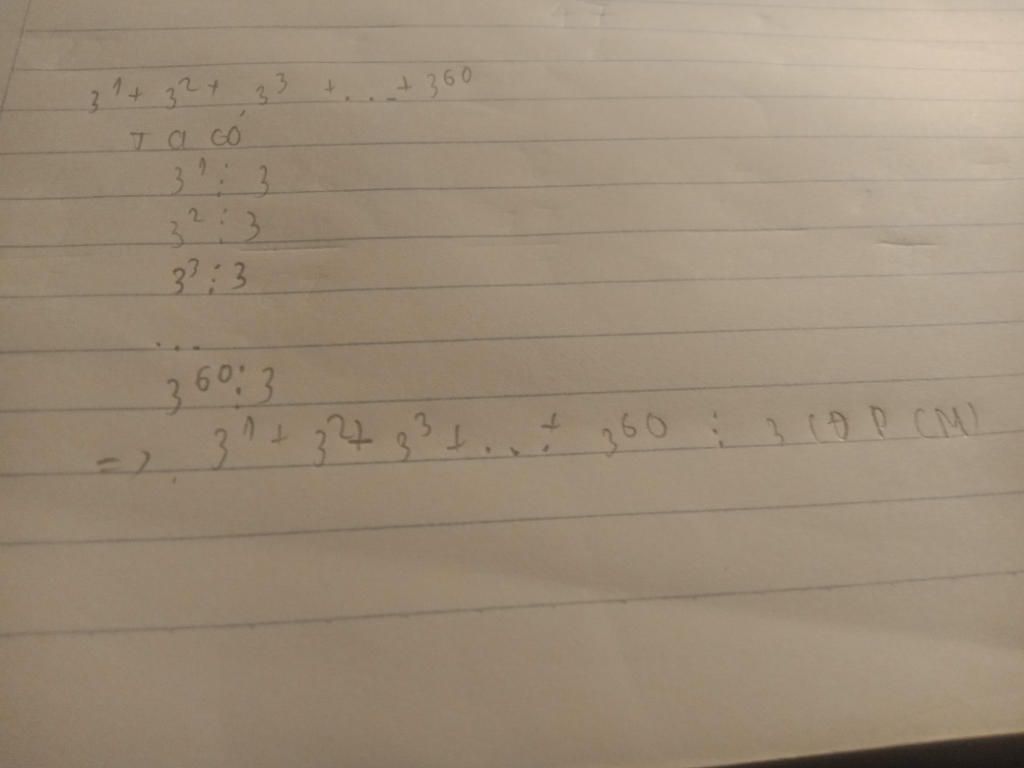 3¹ + 3² + 3³ + ... + 3⁶⁰
Ta có
3¹ ⋮ 3
3² ⋮ 3
3³ ⋮ 3
...
3⁶⁰ ⋮ 3
=> 3¹ + 3² + 3³ + ... + 3⁶⁰ ⋮ 3 (ĐPCM)